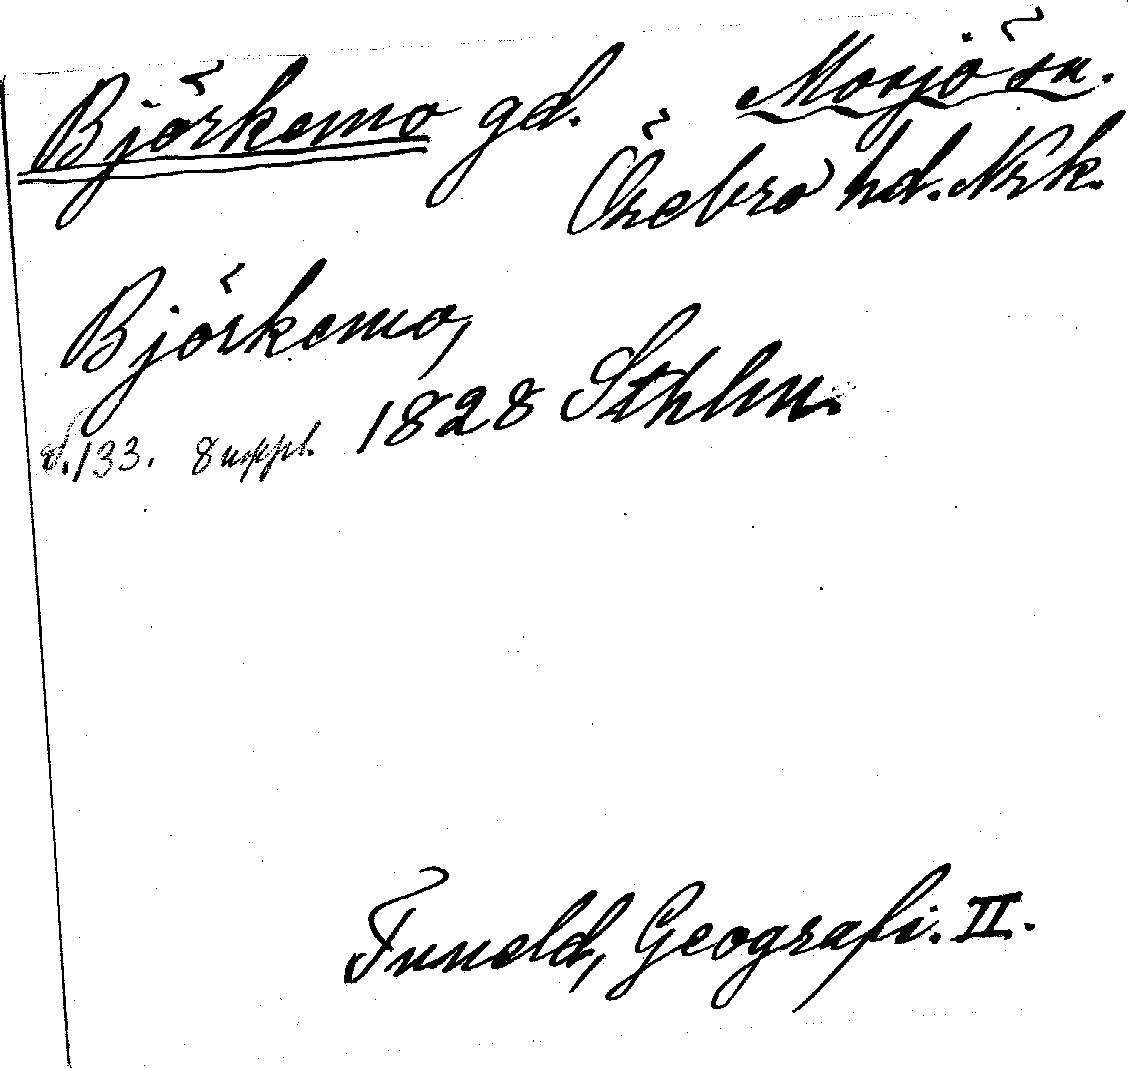 Björkemo gd. Mosjö sn.
Örebro hd. Nrk.
Björkemo,
1828 Sthlm.
s. 133. 8 uppl.
Tuneld, Geografi. II.